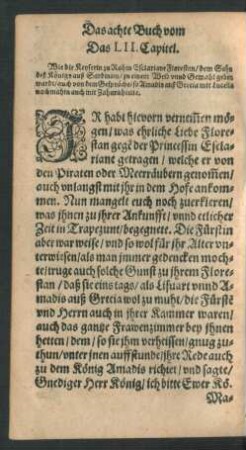 Das achte Buch vom
Das LII. Capitel.
Wie die Keyserin zu Rahm Esclariane Florestan / dem Sohn
deß Königs auß Sardinien / zu einem Weib unnd Gemahl geben
wurde / auch von dem Gespräch so Amadis auß Grecia mit Lucela
IR habt hievorn vernommen mö-
gen / was ehrliche Liebe Flore-
stan gegẽ der Princessin Escla-
riane getragen / welche er von
den Piraten oder Meerräubern genom̃en /
auch vnlangst mit jhr in dem Hofe ankom-
men. Nun mangelt euch noch zuerklären /
was jhnen zu jhrer Ankunfft / vnnd etlicher
Zeit in Trapezunt / begegnete. Die Fürstin
aber war weise / vnd so wol für jhr Alter vn-
terwiesen / als man jmmer gedencken moch-
te / truge auch solche Gunst zu jhrem Flore-
stan / daß sie eins tags / als Lisuart vnnd A-
madis auß Grecia wol zu muht / die Fürstẽ
vnd Herrn auch in jhrer Kammer waren /
auch das gantze Frawenzimmer bey jhnen
hetten / dem / so sie jhm verheissen / gnug zu-
thun / vnter jnen auffstunde / jhre Rede auch
zu dem König Amadis richtet / vnd sagte /
Gnediger Herr König / ich bitte Ewer Kö.
Ma-